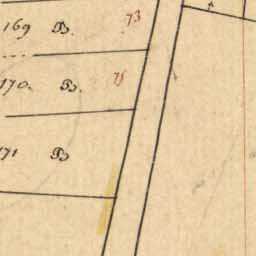 169 B. 73
170. B. 75
171 B